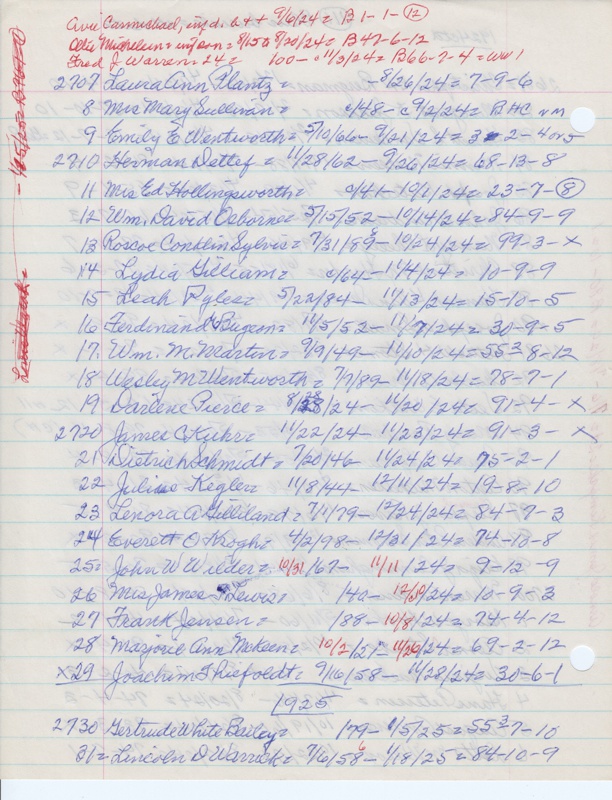 Avie Carmichael, inf d. o++ 9/6/24= B1-1-12
Otto Michelsen= inf son= 8/15 & 8/20/24= B47-6-12
Fred J Warren= 24= 100- c11/3/24= B66-7-4= WW1
2707 Laura Ann Plantz= -8/26/24= 7-9-6
8 Mrs Mary Sullivan= c/48- c9/2/24= BHC
9 Emily E Wentworth= 5/10/66- 9/21/24= 3-2-4 or 5
2710 Herman Detlef= 11/28/62- 9/26/24= 68-13-8
11 Mrs Ed Hollingsworth= c/41- 10/1/24= 23-7-8
12 Wm. David Osborne= 5/15/52- 10/14/24= 84-9-9
13 Roscoe Conklin Sylvis= 7/31/88- 10/24/24= 99-3-x
14 Lydia Gilliam= c/64- 11/4/24= 10-9-9
15 Leah Pyles= 5/22/84- 11/13/24= 15-10-5
16 Ferdinand Bugeon= 11/5/52- 11/7/24= 30-9-5
17. Wm. M. Martin= 9/9/49- 11/10/24= 55 2-8-12
18 Wesley M Wentworth= 7/7/89- 11/18/24= 78-7-1
19 Darlene Pierce= 8/28/24- 11/20/24= 91-4-x
2720 James C Kuhr= 11/22/24- 11/23/24= 91-3-x
21 Dietrich Schmidt= 7/20/46- 11/24/24= 75-2-1
22 Julius Kegler= 11/8/44- 12/11/24= 19-8-10
23 Lenora A Gilliland= 7/1/79- 12/24/24= 84-7-3
24 Everett O Krogh= 4/2/98- 12/31/24= 74-10-8
25= John W Wilder= 10/31/67- 11/11/24= 9-12-9
26 Mrs James Lewis= /42- 12/30/24= 10-9-3
27 Frank Jensen= /88- 10/8/24= 74-4-12
28 Marjorie Ann McKeen= 10/2/21- 11/26/24= 69-2-12
x29 Joachim Thiefoldt= 9/16/58- 11/28/24= 30-6-1
1925
2730 Gertrude White Bailey= /79- 1/5/25= 55 3-7-10
31= Lincoln D Warrick= 7/6/58 6- 1/18/25= 84-10-9